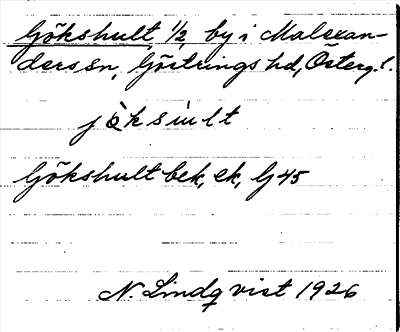 Gökshult, 1/2, by i Malexan-
ders sn, Göstrings hd, Österg.l.
Gökshult bek, ek, G 45
N. Lindqvist 1926